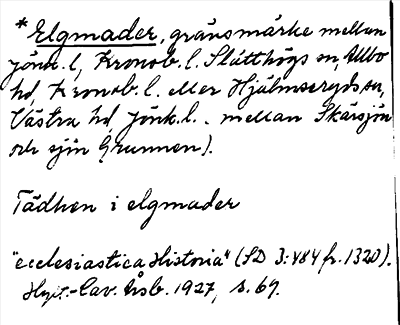 * Elgmader, gränsmärke mellan
Jönk. l, Kronob. l. Slätthögs sn, Allbo
hd, Kronob. l. eller Hjälmseryds sn,
Västra hd, Jönk. l. - mellan Skärsjön
och sjön Grunnen).
Tädhen i elgmader
"ecclesiastica Historia" (SD 3:484 fr. 1320).
Hylt.-Cav. årsb. 1927, s. 69.